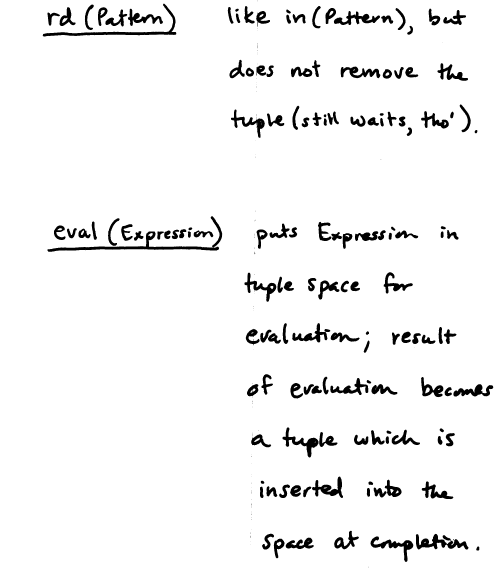 rd (Pattern) like in (Pattern), but
does not remove the
tuple (still waits, tho').
eval (Expression) puts Expression in
tuple space for
evaluation; result
of evaluation becomes
a tuple which is
inserted into the
space at completion.